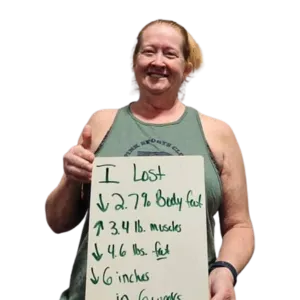 I Lost
↓ 2.7% Body fat
↑ 3.4 lb. muscles
↓ 4.6 lbs. fat
↓ 6 inches
in 6 weeks